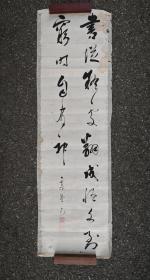 書從疑處翻成悟文到
窮時自有神